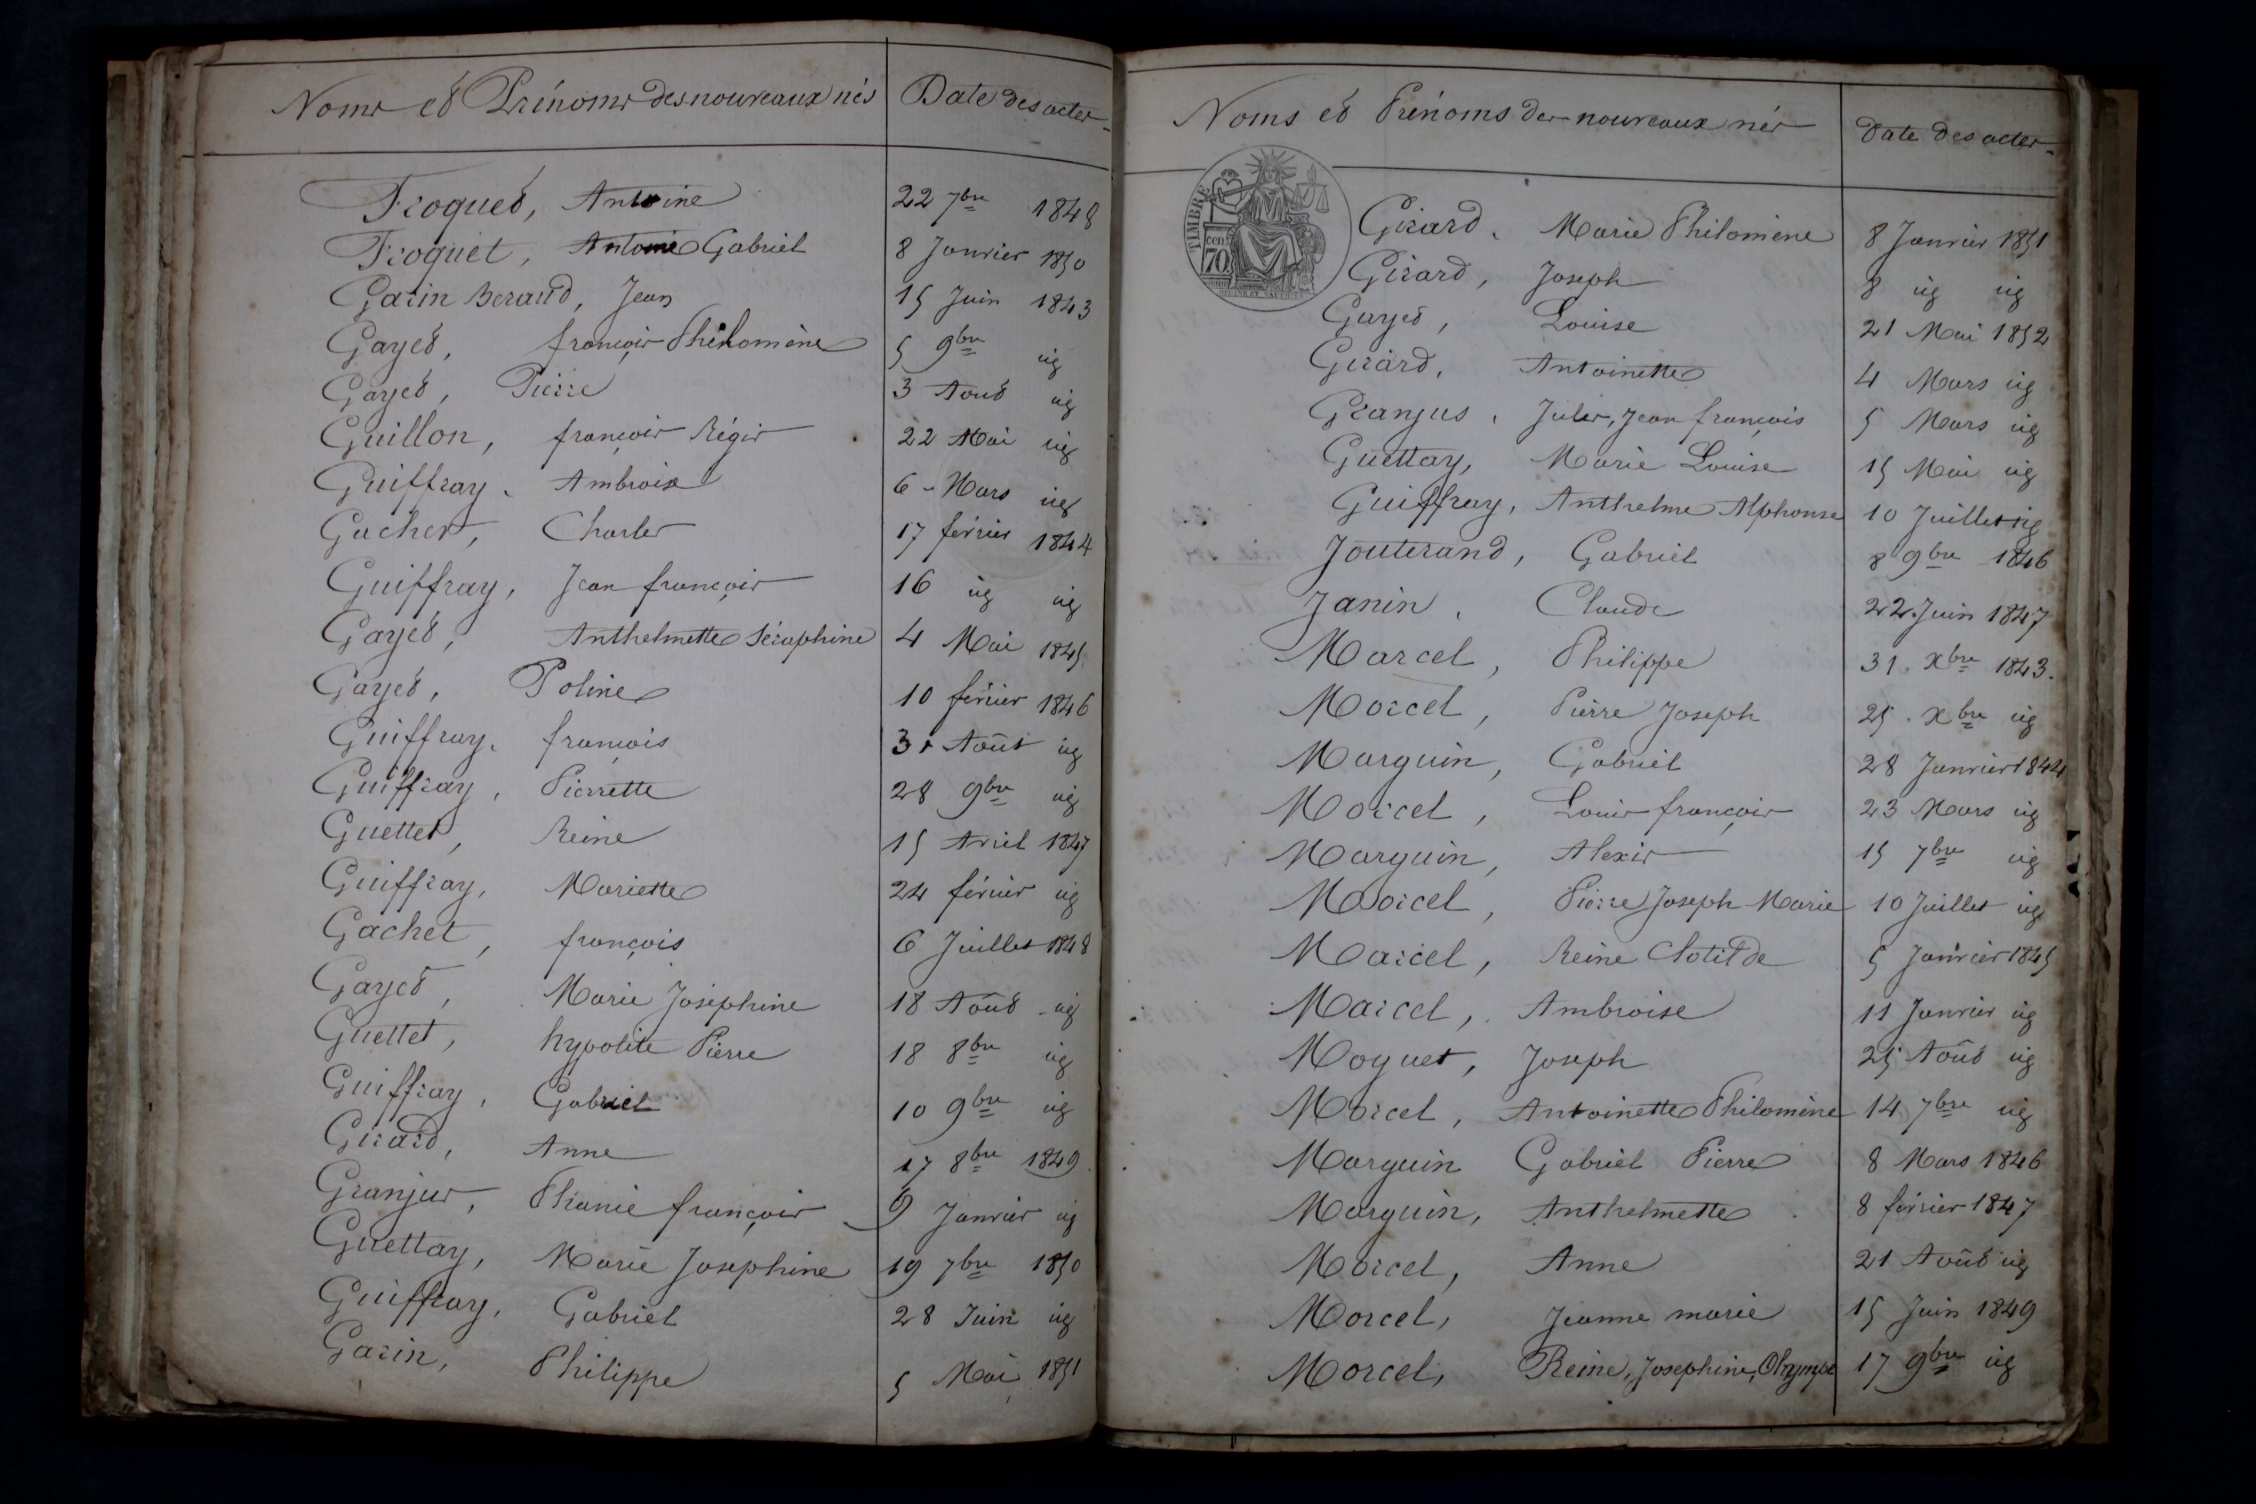 Noms et Prénoms des nouveaux nés Date des actes
Froquet, Antoine 22 7bre 1848
Froquet, Antoine Gabriel 8 Janvier 1850
Garin Beraud, Jean 15 Juin 1843
Gayet, françois Philomène 5 9bre ig
Gayet, Pierre 3 Aout ig
Guillon, françois Régis 22 Mai ig
Guiffray, Ambroise 6 Mars ig
Gachet, Charles 17 février 1844
Guiffray, Jean françois 16 ig ig
Gayet, Anthelmette Séraphine 4 Mai 1845
Gayet, Poline 10 février 1846
Guiffray, françois 31 Août ig
Guiffray, Pierrette 28 9bre ig
Guettet, Reine 15 Avril 1847
Guiffray, Mariette 24 février ig
Gachet, françois 6 Juillet 1848
Gayet, Marie Joséphine 18 Août ig
Guettet, hypolite Pierre 18 8bre ig
Guiffray, Gabriel 10 9bre ig
Girard, Anne 17 8bre 1849
Granjus, françois 9 Janvier ig
Guettay, Marie Josephine 19 7bre 1850
Guiffray, Gabriel 28 Juin ig
Garin, Philippe 5 Mai 1851
Noms et Prénoms des nouveaux nés Date des actes
TIMBRE
cen.
70
Girard, Marie Philomène 8 Janvier 1851
Girard, Joseph 8 ig ig
Gayet, Louise 21 Mai 1852
Girard, Antoinette 4 Mars ig
Granjus, Jules, Jean françois 5 Mars ig
Guettay, Marie Louise 15 Mai ig
Guiffray, Anthelme Alphonse 10 Juillet ig
Jouterand, Gabriel 8 9bre 1846
Janin, Claude 22 Juin 1847
Marcel, Philippe 31 Xbre 1843.
Morcel, Pierre Joseph 25 Xbre ig
Marguin, Gabriel 28 Janvier 1844
Morcel, Louis françois 23 Mars ig
Marguin, Alexis 15 7bre ig
Morcel, Pierre Joseph Marie 10 Juillet ig
Marcel, Reine Clotilde 5 Janvier 1845
Marcel, Ambroise 11 Janvier ig
Moguet, Joseph 25 Août ig
Morcel, Antoinette Philomène 14 7bre ig
Marguin Gabriel Pierre 8 Mars 1846
Marguin, Anthelmette 8 février 1847
Morcel, Anne 21 Août ig
Morcel, Jeanne marie 15 Juin 1849
Morcel, Reine, Josephine, Olympe 17 9bre ig